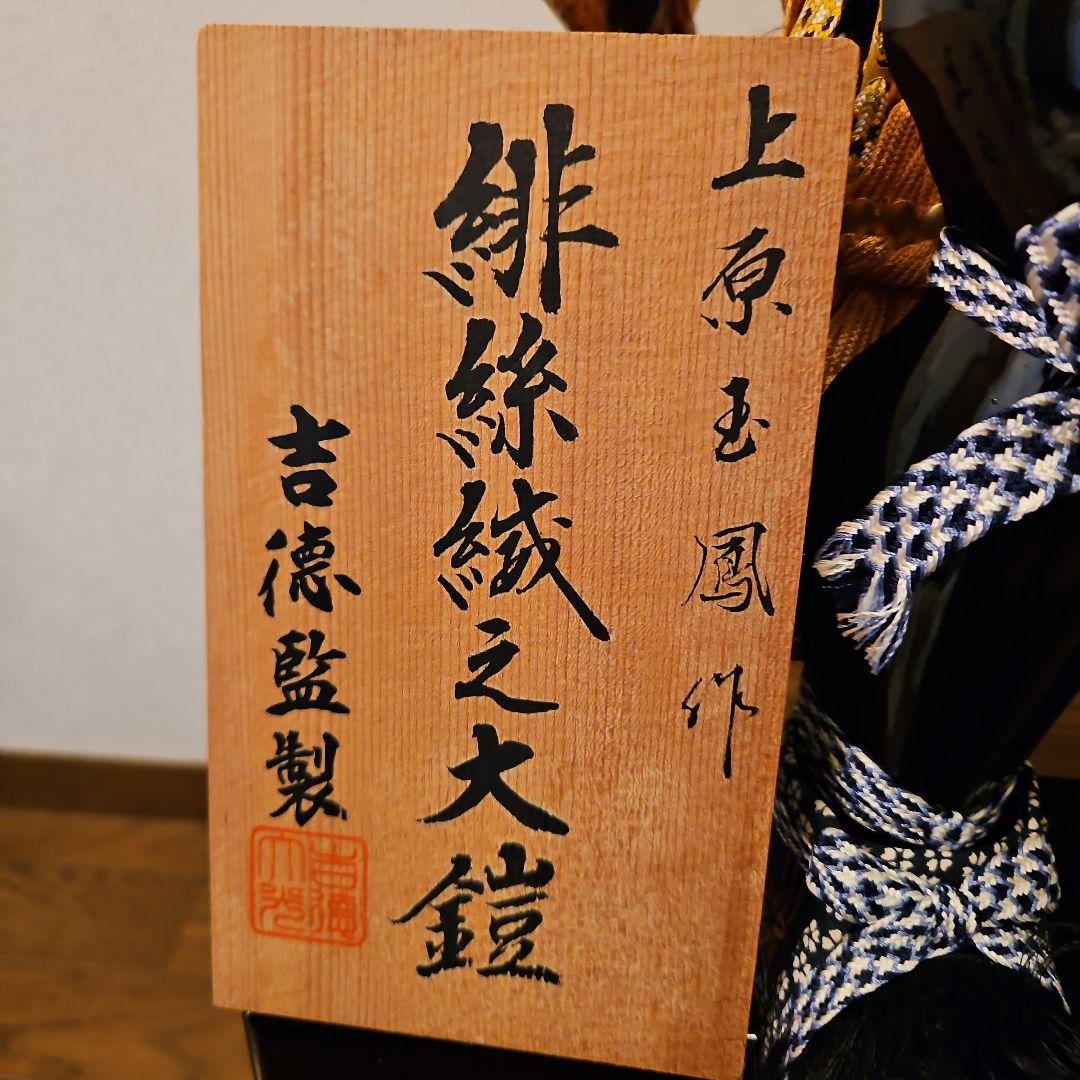 上原玉鳳作
緋絲縅之大鎧
吉德監製
吉德大光